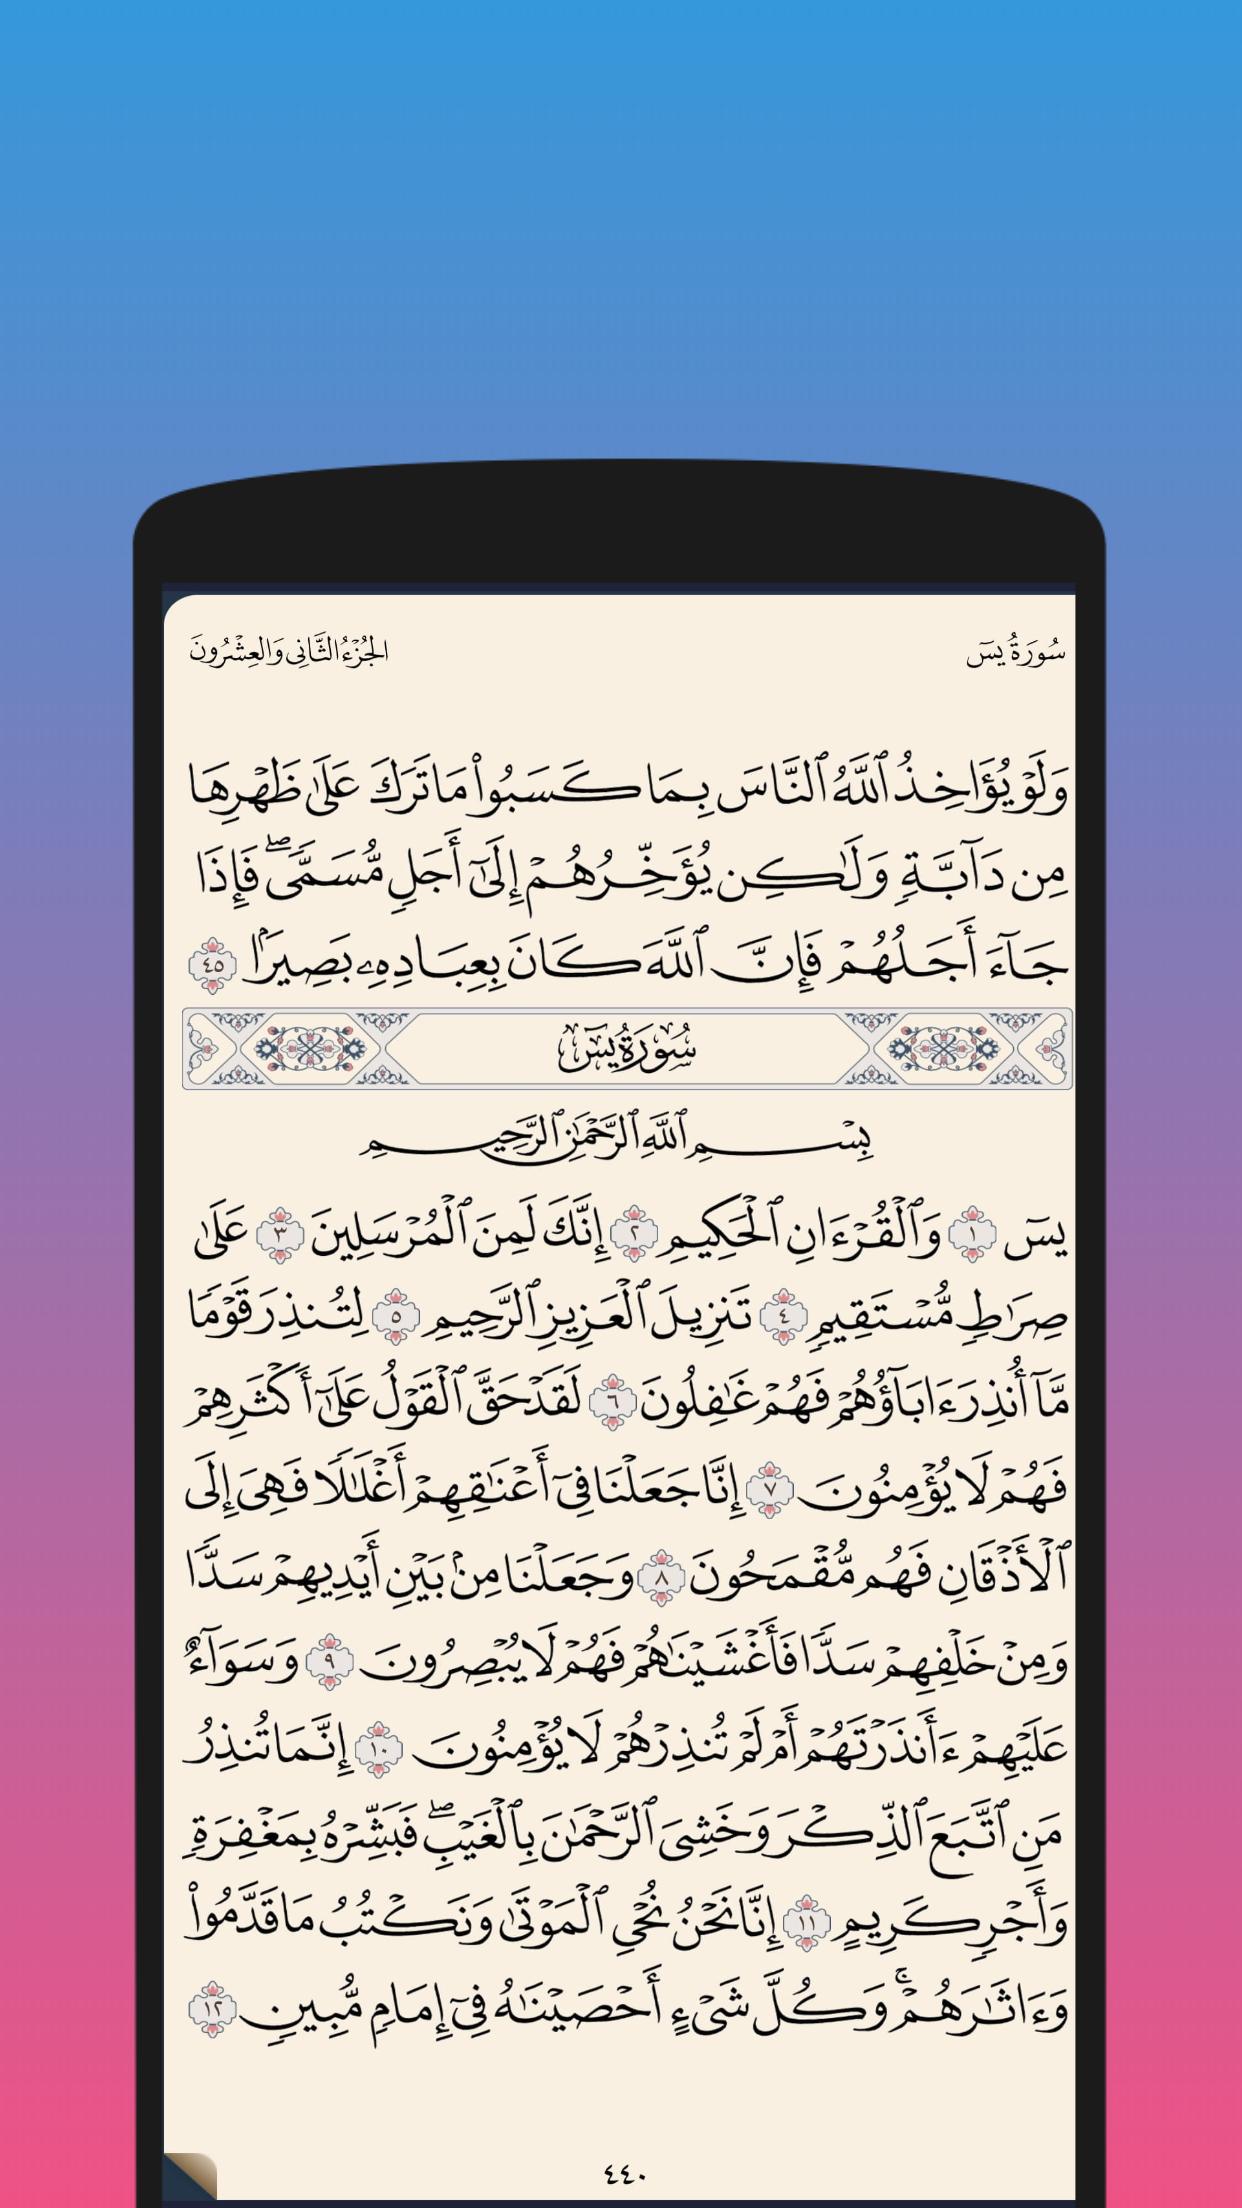 سُورَةُ يسٓ
الجُزْءُ الثَّانِي وَالعِشْرُونَ
وَلَوْ يُؤَاخِذُ ٱللَّهُ ٱلنَّاسَ بِمَا كَسَبُوا۟ مَا تَرَكَ عَلَىٰ ظَهْرِهَا
مِن دَآبَّةٍ وَلَٰكِن يُؤَخِّرُهُمْ إِلَىٰٓ أَجَلٍ مُّسَمًّى ۖ فَإِذَا
جَآءَ أَجَلُهُمْ فَإِنَّ ٱللَّهَ كَانَ بِعِبَادِهِۦ بَصِيرًۢا ٤٥
سُورَةُ يسٓ
بِسْمِ ٱللَّهِ ٱلرَّحْمَٰنِ ٱلرَّحِيمِ
يسٓ ١ وَٱلْقُرْءَانِ ٱلْحَكِيمِ ٢ إِنَّكَ لَمِنَ ٱلْمُرْسَلِينَ ٣ عَلَىٰ
صِرَٰطٍ مُّسْتَقِيمٍ ٤ تَنزِيلَ ٱلْعَزِيزِ ٱلرَّحِيمِ ٥ لِتُنذِرَ قَوْمًا
مَّآ أُنذِرَ ءَابَآؤُهُمْ فَهُمْ غَٰفِلُونَ ٦ لَقَدْ حَقَّ ٱلْقَوْلُ عَلَىٰٓ أَكْثَرِهِمْ
فَهُمْ لَا يُؤْمِنُونَ ٧ إِنَّا جَعَلْنَا فِىٓ أَعْنَٰقِهِمْ أَغْلَٰلًا فَهِىَ إِلَى
ٱلْأَذْقَانِ فَهُم مُّقْمَحُونَ ٨ وَجَعَلْنَا مِنۢ بَيْنِ أَيْدِيهِمْ سَدًّا
وَمِنْ خَلْفِهِمْ سَدًّا فَأَغْشَيْنَٰهُمْ فَهُمْ لَا يُبْصِرُونَ ٩ وَسَوَآءٌ
عَلَيْهِمْ ءَأَنذَرْتَهُمْ أَمْ لَمْ تُنذِرْهُمْ لَا يُؤْمِنُونَ ١٠ إِنَّمَا تُنذِرُ
مَنِ ٱتَّبَعَ ٱلذِّكْرَ وَخَشِىَ ٱلرَّحْمَٰنَ بِٱلْغَيْبِ ۖ فَبَشِّرْهُ بِمَغْفِرَةٍ
وَأَجْرٍ كَرِيمٍ ١١ إِنَّا نَحْنُ نُحْىِ ٱلْمَوْتَىٰ وَنَكْتُبُ مَا قَدَّمُوا۟
وَءَاثَٰرَهُمْ ۚ وَكُلَّ شَىْءٍ أَحْصَيْنَٰهُ فِىٓ إِمَامٍ مُّبِينٍ ١٢
٤٤٠